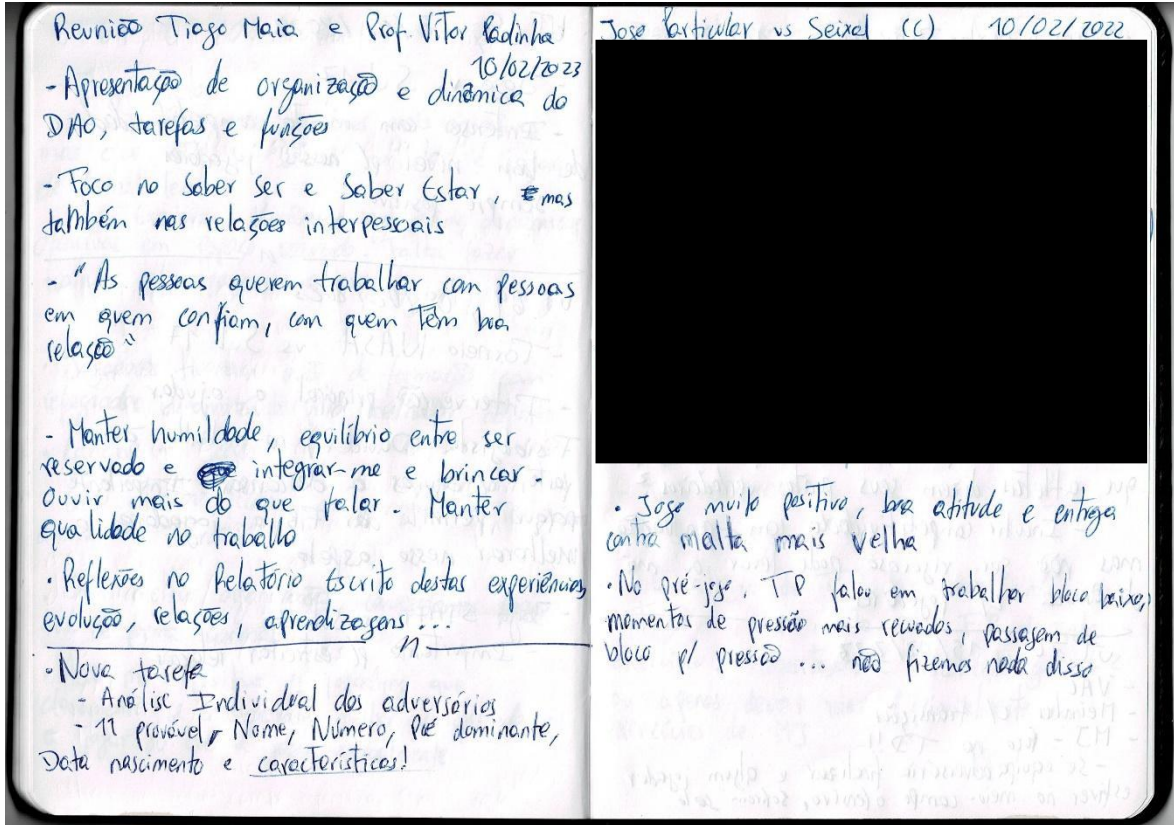 Reunião Tiago Maia e Prof. Vítor Gadinha
10/02/2023
- Apresentação de organização e dinâmica do
DAO, tarefas e funções
- Foco no Saber Ser e Saber Estar, mas
também nas relações interpessoais
- "As pessoas querem trabalhar com pessoas
em quem confiam, com quem têm boa
relação"
- Manter humildade, equilíbrio entre ser
reservado e integrar-me e brincar.
Ouvir mais do que falar. Manter
qualidade no trabalho
• Reflexões no Relatório Escrito destas experiências,
evolução, relações, aprendizagens...
• Nova tarefa
- Análise Individual dos adversários
- 11 provável, Nome, Número, Pé dominante,
Data nascimento e características!
Jogo Particular vs Seixal (C) 10/02/2022
• Jogo muito positivo, boa atitude e entrega
contra malta mais velha
• No pré-jogo, TP falou em trabalhar bloco baixo,
momentos de pressão mais recuados, passagem de
bloco p/ pressão... não fizemos nada disso